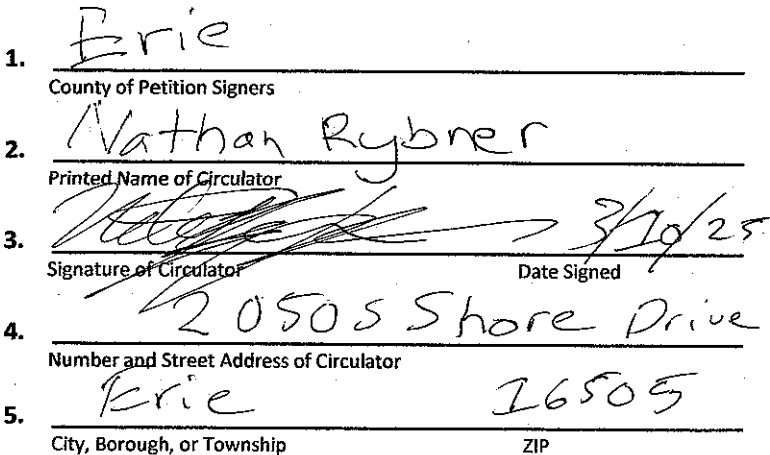 1. Erie
County of Petition Signers
2. Nathan Rybner
Printed Name of Circulator
3. 3/10/25
Signature of Circulator Date Signed
4. 2050 S Shore Drive
Number and Street Address of Circulator
5. Erie 16505
City, Borough, or Township ZIP